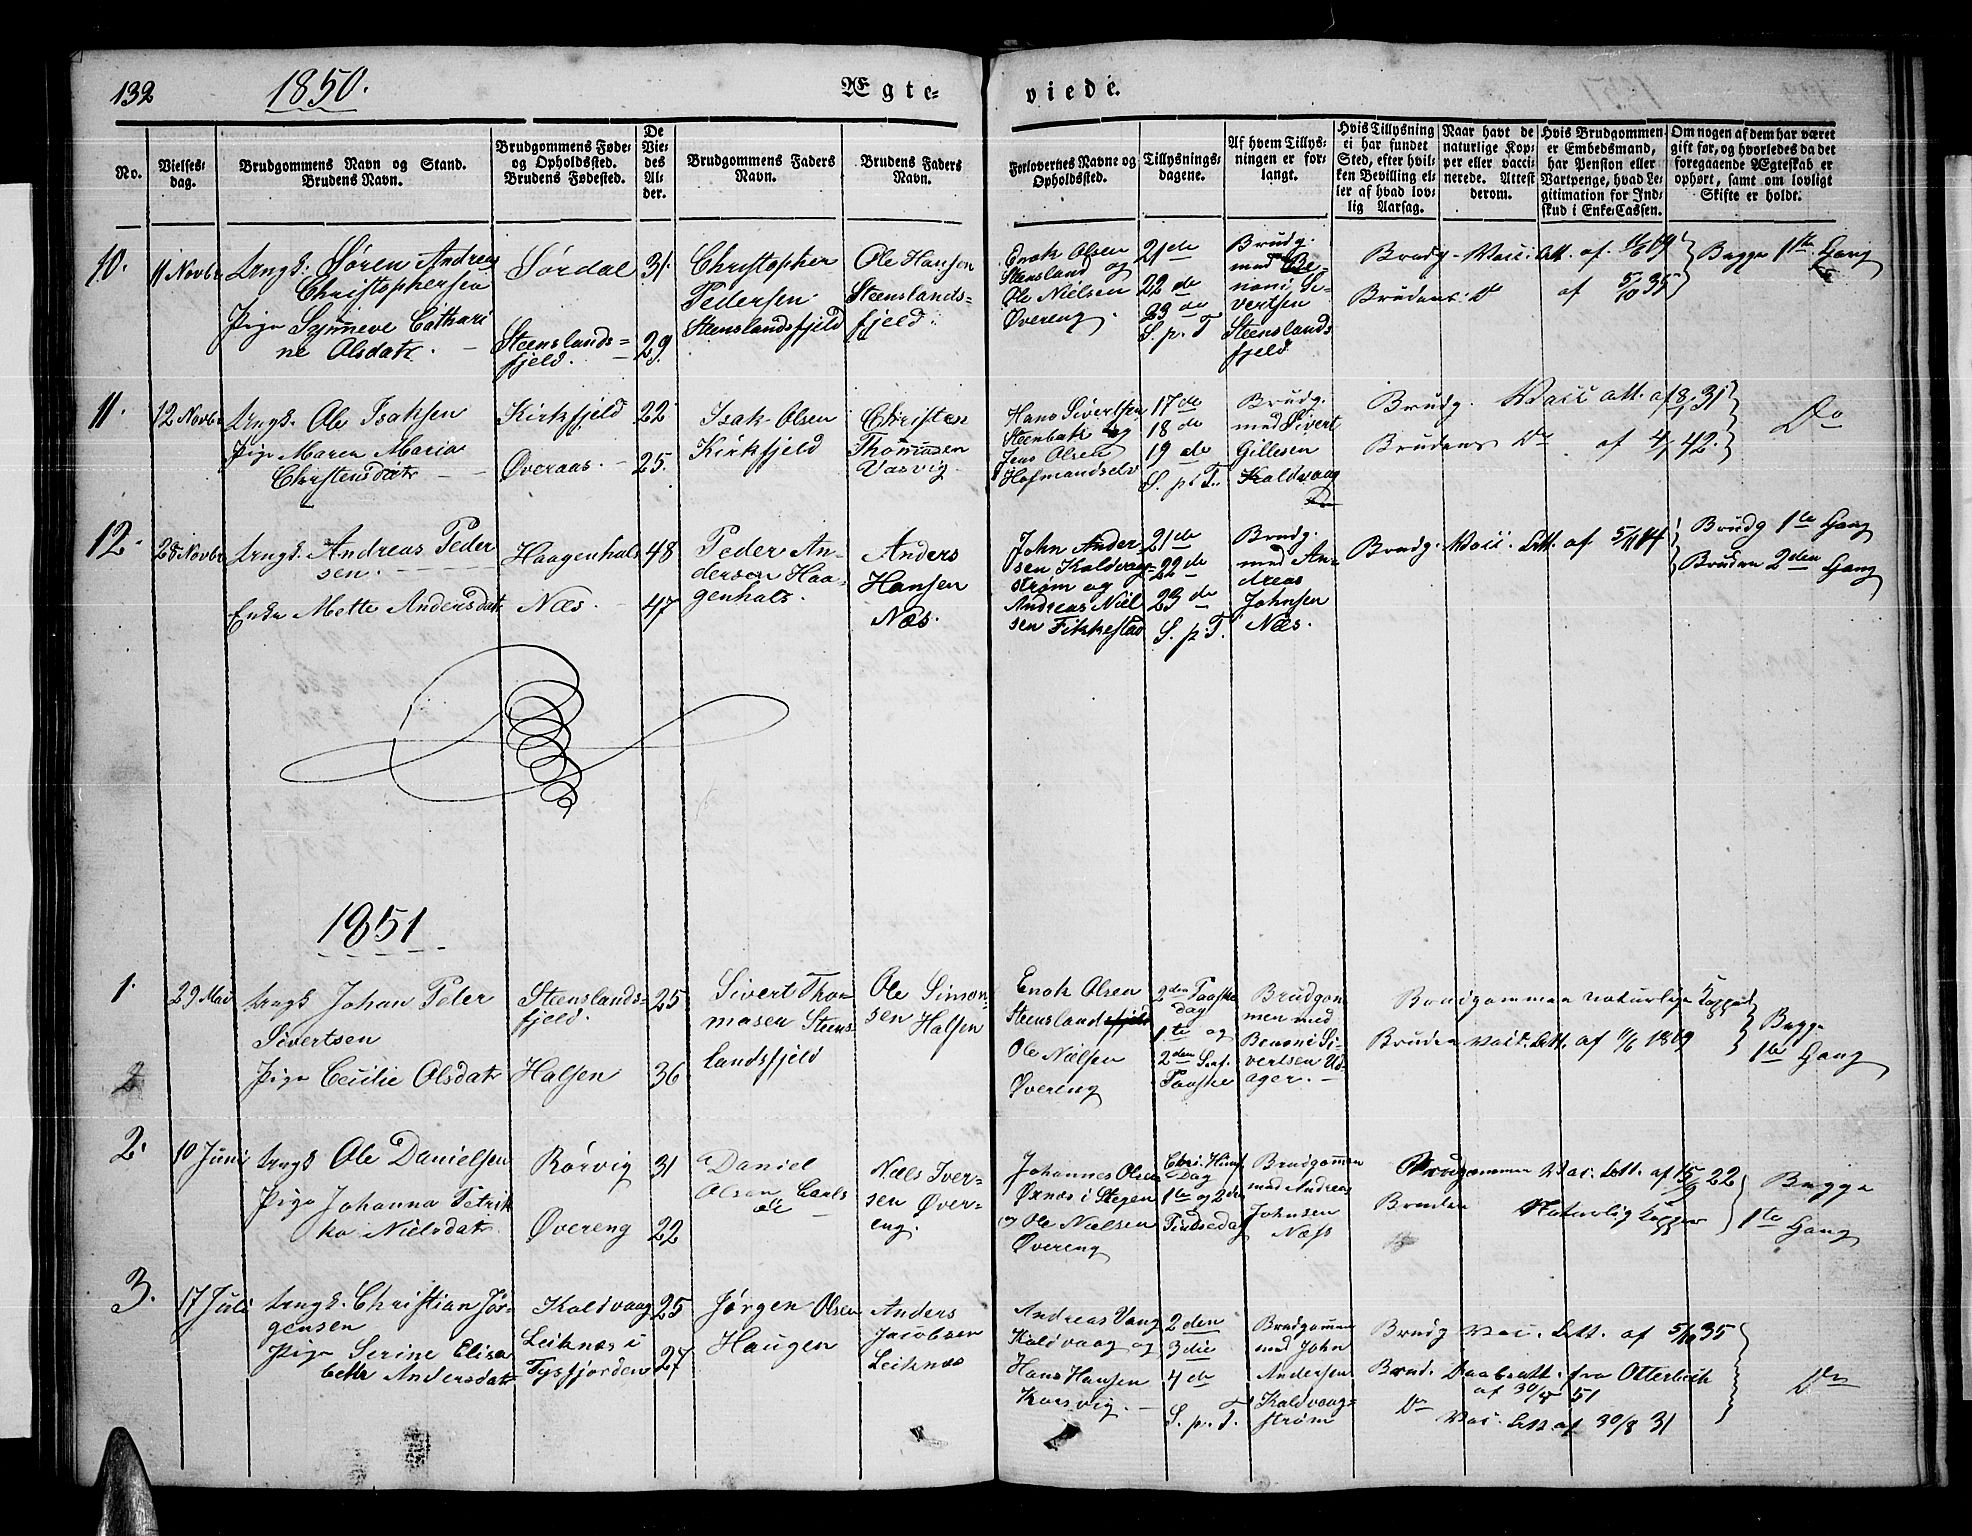 132
1850.
Ægte-
viede.
No.
Vielses-
dag.
Brudgommens Navn og Stand.
Brudens Navn.
Brudgommens Føde-
og Opholdssted.
Brudens Fødested.
De
Vie-
des
Al-
der.
Brudgommens Faders
Navn.
Brudens Faders
Navn.
Forlovernes Navne og
Opholdssted.
Tillysnings-
dagene.
Af hvem Tillys-
ningen er for-
langt.
Hvis Tillysning
ei har fundet
Sted, efter hvil-
ken Bevilling el-
ler af hvad lov-
lig Aarsag.
Naar havt de
naturlige Kop-
per eller vacci-
nerede. Attest
derom.
Hvis Brudgommen
er Embedsmand,
har Pension eller
Vartpenge, hvad Le-
gitimation for Ind-
skud i Enke-Cassen.
Om nogen af dem har været
gift før, og hvorledes da det
foregaaende Ægteskab er
ophørt, samt om lovligt
Skifte er holdt.
10.
11 Novbr
Ungk. Søren Andreas
Christophersen
Pige Synneve Cathari
ne Olsdatr.
Sørdal
Steenslands=
fjeld.
31.
29.
Christopher
Pedersen
Steenslandsfjeld
Ole Hansen
Steenslands=
fjeld.
Enok Olsen
Steensland og
Ole Nielsen
Øvereng.
21de
22de
23de
S. p. T
Brudg.
med Be-
noni Si-
vertsen
Steenslands
fjeld
Brudg. Vacc. Att. af 11/6 19
Brudens Do af 5/10 35
Begge 1ste Gang
11.
12 Novbr
Ungk. Ole Isaksen
Pige Maren Maria
Christensdatr
Kirkfjeld
Øveraas.
22
25.
Isak Olsen
Kirkfjeld
Christen
Thommesen
Vasvig.
Hans Sivertsen
Steenbak og
Jens Olsen
Hofmandselv
17de
18de
19de
S. p. T.
Brudg.
med Sivert
Gillesen
Kaldvaag
Brudg. Vacc att. af 8/7 31
Brudens Do af 4/7 42.
Do
12.
28 Novbr
Ungk. Andreas Peder
sen.
Enke Mette Andersdatr
Haagenhals
Næs.
48
47
Peder An-
dersen Haa-
genhals.
Anders
Hansen
Næs.
John Ander
sen Kaldvaag-
strøm og
Andreas Niel
sen Fikkestad
21de
22de
23de
S. p. T.
Brudg.
med An-
dreas
Johnsen
Næs.
Brudg. Vacc. Att. af 5/11 14
Brudg 1te Gang
Bruden 2den Gang
1851
1.
29 Mai
Ungk Johan Peter
Sivertsen
Pige Cecilie Olsdatr
Steenslands=
fjeld.
Halsen
25
36
Sivert Tho-
masen Steens
landsfjeld
Ole Simon-
sen Halsen
Enok Olsen
Steenslandsfjeld
Ole Nielsen
Øvereng
2den Paaske
dag
1te og
2den S.ef.
Paaske
Brudgom
men med
Benoni Si-
vertsen Ud-
ager.
Brudgommen naturlige Kopper
Bruden Vacc. Att. af 11/6 1819
Begge
1te Gang
2
2.
10 Juni
Ungk Ole Danielsen
Pige Johanna Petrik
ka Nielsdatr
Rørvig
Øvereng
31
22
Daniel
Olsen
Niels Iver-
sen Øver-
eng.
Johannes Olsen
Øxnæs i Stegen
og Ole Nielsen
Øvereng
Chri. Himf
Dag
1te og 2den
Pintsedag
Brudgommen
med Andreas
Johnsen
Næss
Brudgommen Vac. Att. af 15/9 22
Bruden Naturlig Kopper
Begge
1te
Gang
3.
17 Juli
Ungk. Christian Jør-
gensen
Pige Serine Elisa
beth Andersdatr
Kaldvaag
Leiknæs i
Tysfjorden
25
27
Jørgen Olsen
Haugen
Anders
Jacobsen
Leiknæs
Andreas Vang
Kaldvaag og
Hans Hansen
Korsvig.
2den
3die
4de
S. p. T.
Brudgommen
med John
Andersen
Kaldvaag-
strøm
Brudg Vac. Att. af 5/10 35
Brud. Daabsatt. fra Otterbech
af 30/5 51
Do Vac. Att af 30/8 31
Do